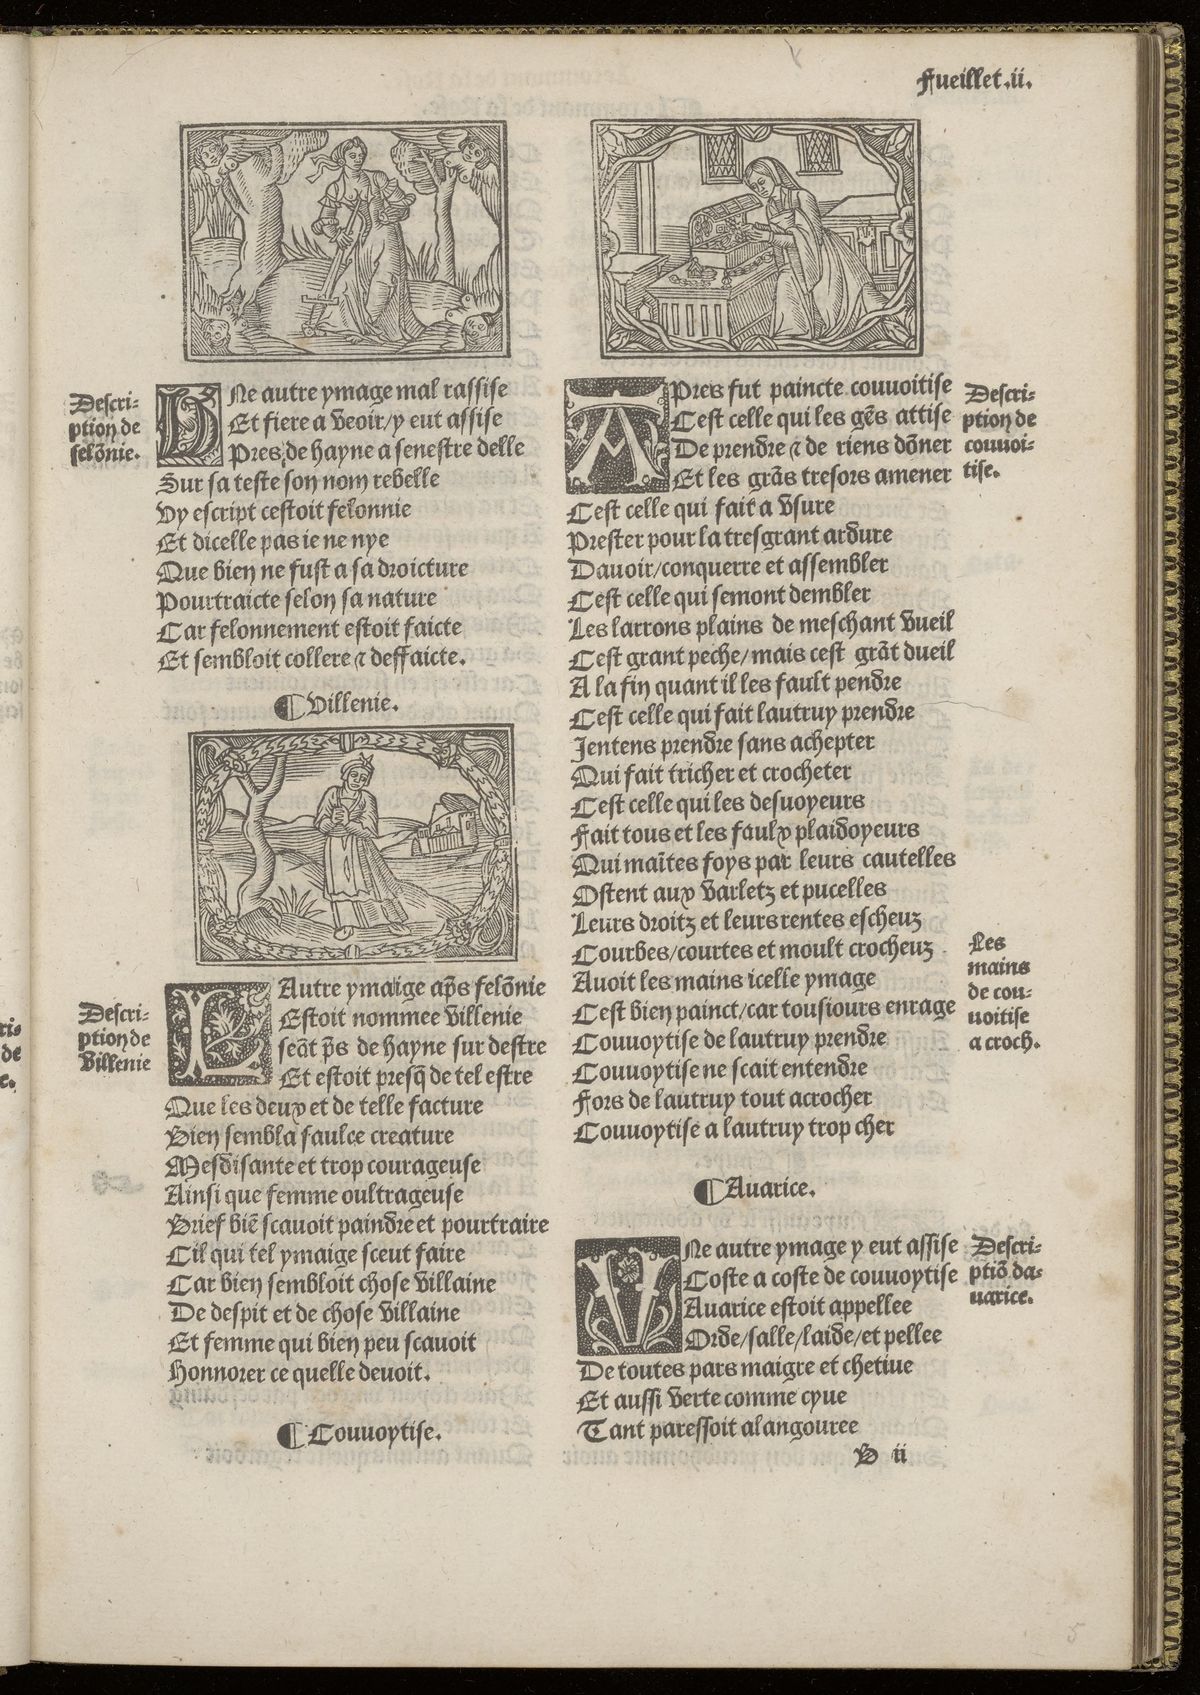 Fueillet.ii.
Descri-
ption de
felõnie.
VNe autre ymage mal rassise
Et fiere a veoir/y eut assise
Pres de hayne a senestre delle
Sur sa teste son nom rebelle
Vy escript cestoit felonnie
Et dicelle pas ie ne nye
Que bien ne fust a sa droicture
Pourtraicte selon sa nature
Car felonnement estoit faicte
Et sembloit collere ⁊ deffaicte.
¶ Villenie.
Descri-
ption de
Villenie
LAutre ymaige ap̃s felõnie
Estoit nommee villenie
seãt p̃s de hayne sur destre
Et estoit presq̃ de tel estre
Que les deux et de telle facture
Bien sembla faulce creature
Mesdisante et trop courageuse
Ainsi que femme oultrageuse
Brief biẽ scauoit paindre et pourtraire
Cil qui tel ymaige sceut faire
Car bien sembloit chose villaine
De despit et de chose villaine
Et femme qui bien peu scauoit
Honnorer ce quelle deuoit.
¶ Couuoytise.
APres fut paincte couuoitise
Cest celle qui les gẽs attise
De prendre ⁊ de riens dõner
Et les grãs tresors amener
Cest celle qui fait a vsure
Prester pour la tresgrant ardure
Dauoir/conquerre et assembler
Cest celle qui semont dembler
Les larrons plains de meschant vueil
Cest grant peche/mais cest grãt dueil
A la fin quant il les fault pendre
Cest celle qui fait lautruy prendre
Jentens prendre sans achepter
Qui fait tricher et crocheter
Cest celle qui les desuoyeurs
Fait tous et les faulx plaidoyeurs
Qui maĩtes foys par leurs cautelles
Ostent aux varletz et pucelles
Leurs droitz et leurs rentes escheuz
Courbes/courtes et moult crocheuz
Auoit les mains icelle ymage
Cest bien painct/car tousiours enrage
Couuoytise de lautruy prendre
Couuoytise ne scait entendre
Fors de lautruy tout acrocher
Couuoytise a lautruy trop cher
Descri-
ption de
couuoi-
tise.
Les
mains
de cou-
uoitise
a croch.
¶ Auarice.
VNe autre ymage y eut assise
Coste a coste de couuoytise
Auarice estoit appellee
Orde/salle/laide/et pellee
De toutes pars maigre et chetiue
Et aussi verte comme cyue
Tant paressoit alangouree
Descri-
ptiõ da-
uarice.
B ii